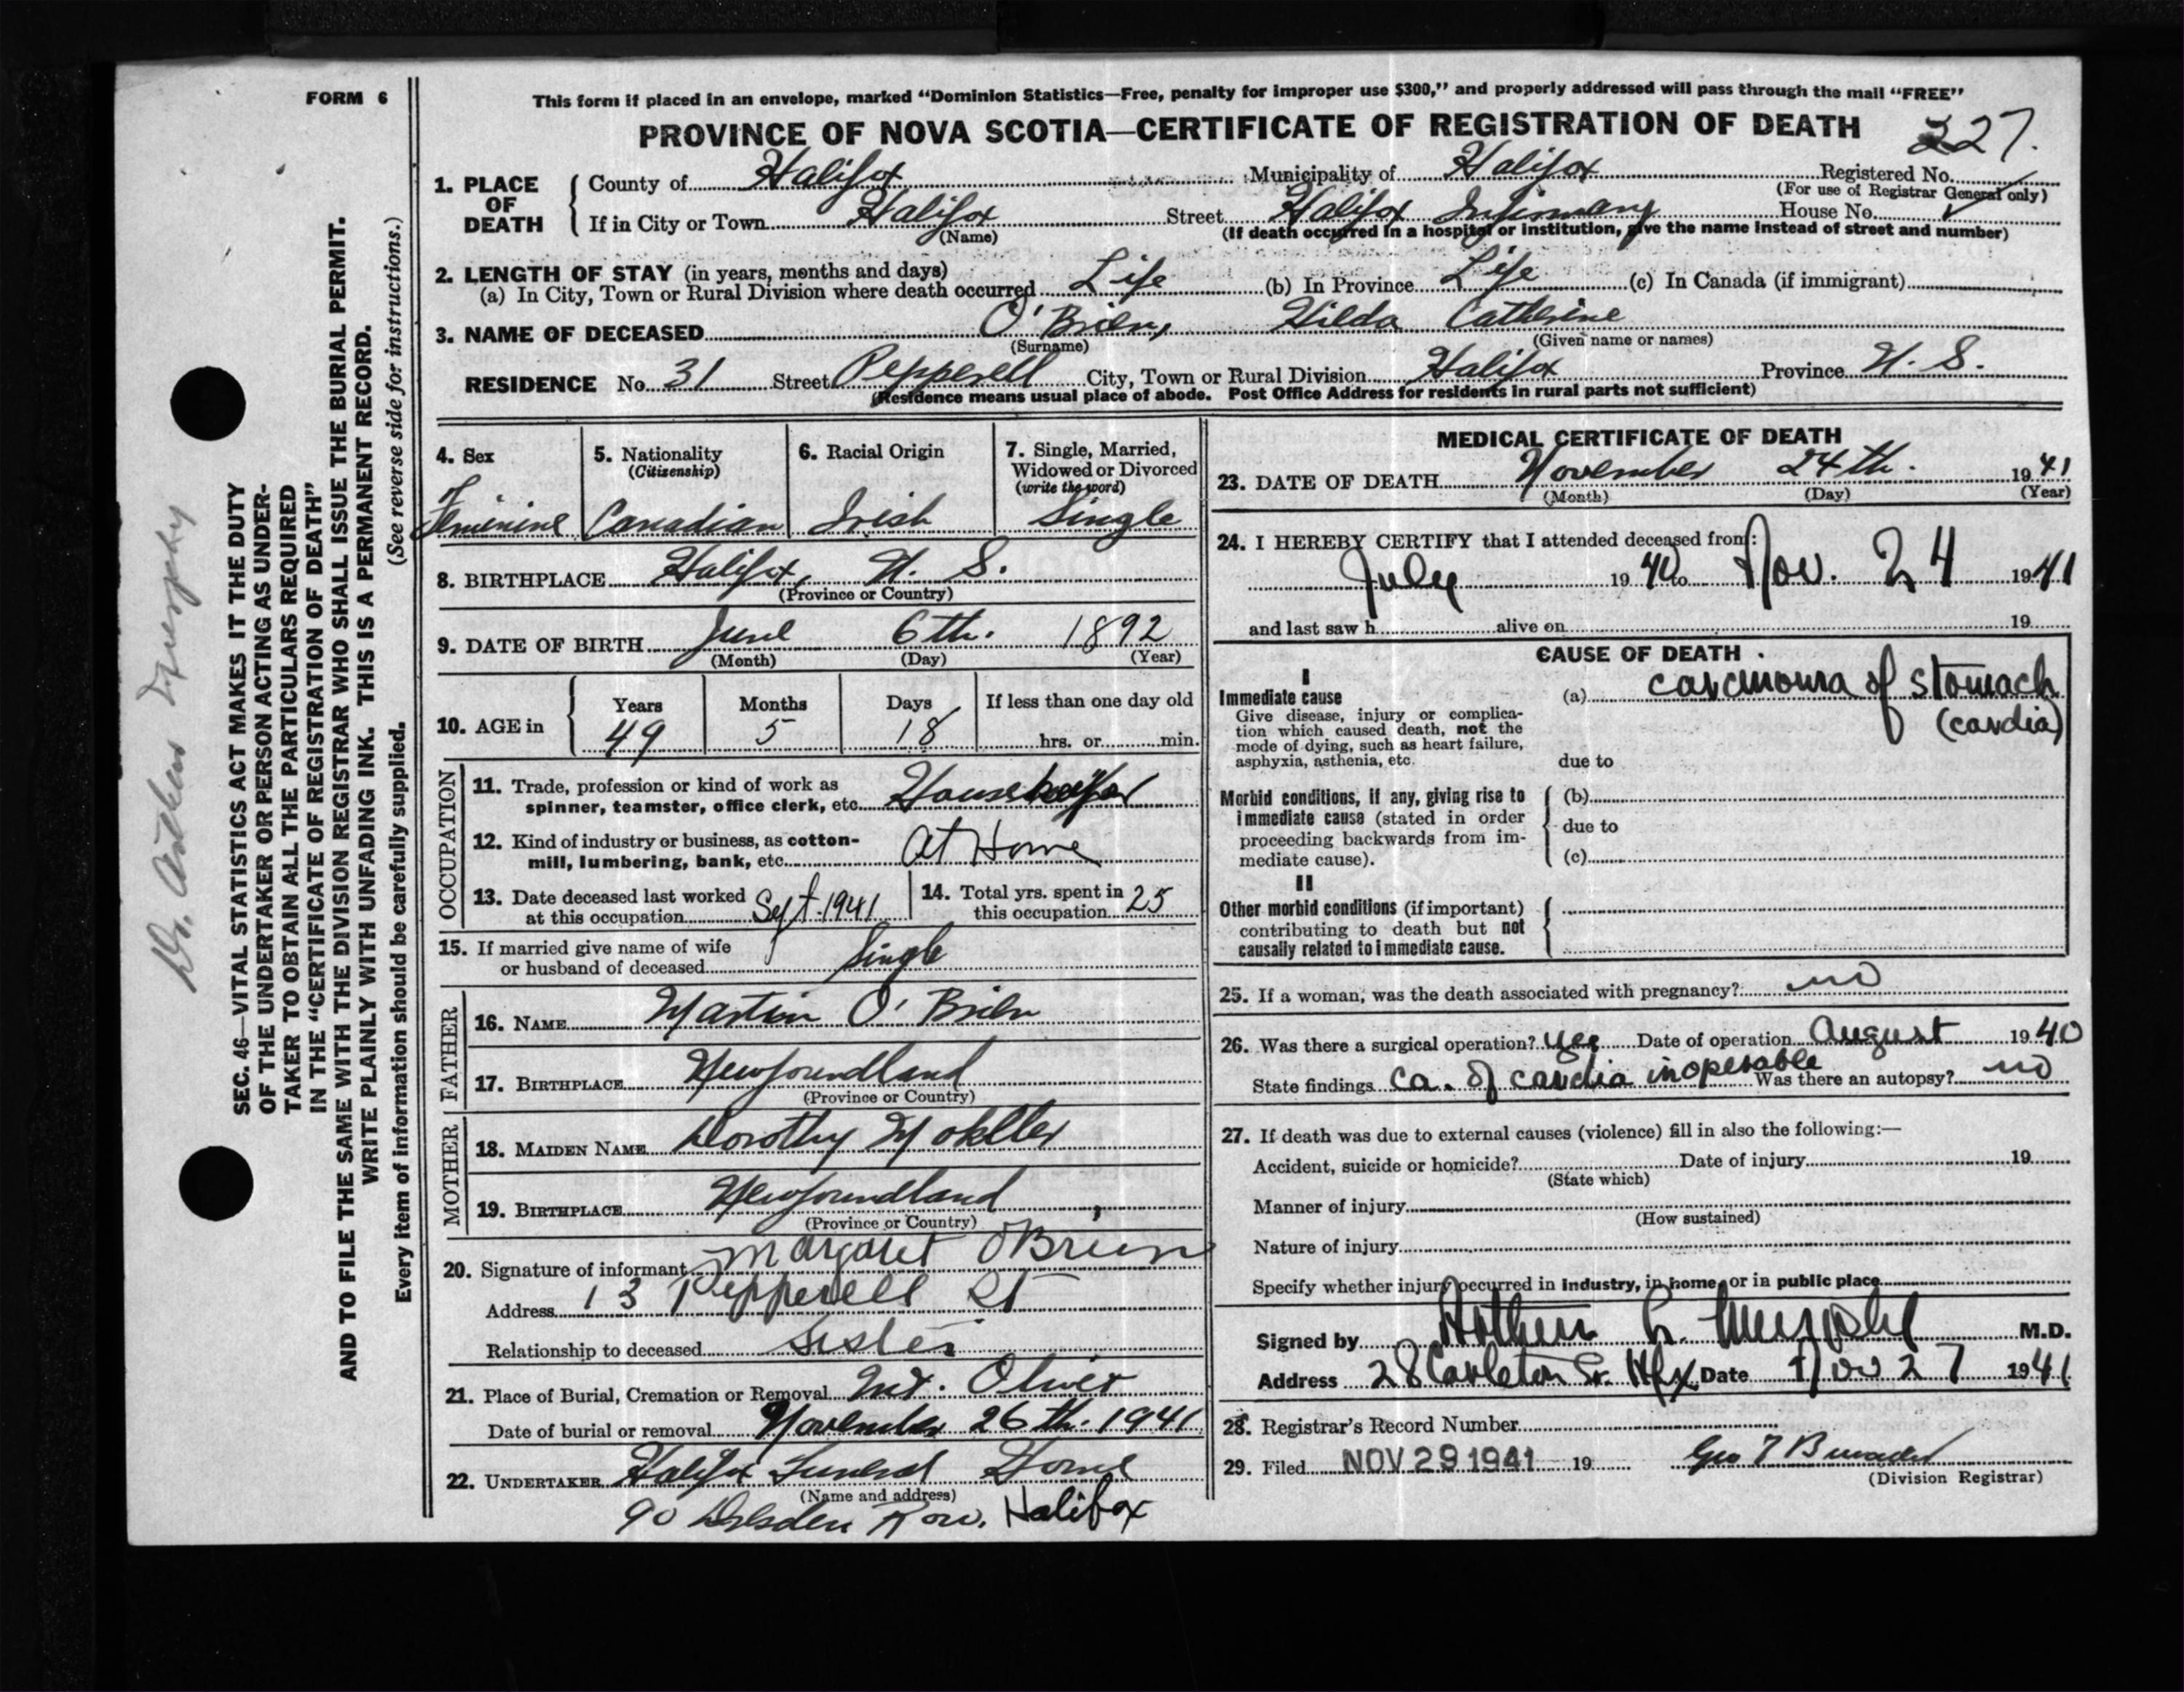 FORM 6
This form if placed in an envelope, marked “Dominion Statistics—Free, penalty for improper use $300,” and properly addressed will pass through the mail “FREE”
PROVINCE OF NOVA SCOTIA—CERTIFICATE OF REGISTRATION OF DEATH
227.
1. PLACE OF DEATH
County of Halifax Municipality of Halifax Registered No.
(For use of Registrar General only)
If in City or Town Halifax Street Halifax Infirmary House No.
(Name) (If death occurred in a hospital or institution, give the name instead of street and number)
2. LENGTH OF STAY (in years, months and days)
(a) In City, Town or Rural Division where death occurred Life (b) In Province Life (c) In Canada (if immigrant)
3. NAME OF DECEASED O'Brien, Hilda Catherine
(Surname) (Given name or names)
RESIDENCE No. 31 Street Pepperell City, Town or Rural Division Halifax Province N. S.
(Residence means usual place of abode. Post Office Address for residents in rural parts not sufficient)
4. Sex
Feminine
5. Nationality
(Citizenship)
Canadian
6. Racial Origin
Irish
7. Single, Married,
Widowed or Divorced
(write the word)
Single
8. BIRTHPLACE Halifax, N. S.
(Province or Country)
9. DATE OF BIRTH June 6th. 1892
(Month) (Day) (Year)
10. AGE in
Years Months Days If less than one day old
49 5 18 hrs. or min.
OCCUPATION
11. Trade, profession or kind of work as
spinner, teamster, office clerk, etc.
12. Kind of industry or business, as cotton-
mill, lumbering, bank, etc. At Home
13. Date deceased last worked
at this occupation Sept 1941
14. Total yrs. spent in
this occupation 25
15. If married give name of wife
or husband of deceased Single
FATHER
16. NAME Martin O'Brien
17. BIRTHPLACE Newfoundland
(Province or Country)
MOTHER
18. MAIDEN NAME Dorothy
19. BIRTHPLACE Newfoundland
(Province or Country)
20. Signature of informant Margaret O'Brien
Address 13 Pepperell St
Relationship to deceased Sister
21. Place of Burial, Cremation or Removal Mt. Olivet
Date of burial or removal November 26th. 1941
22. UNDERTAKER Halifax Funeral Home
(Name and address)
90 Dresden Row, Halifax
MEDICAL CERTIFICATE OF DEATH
23. DATE OF DEATH November 24th. 1941
(Month) (Day) (Year)
24. I HEREBY CERTIFY that I attended deceased from:
July 1940 to Nov. 24 1941
and last saw h alive on 19
CAUSE OF DEATH
I
Immediate cause
Give disease, injury or complica-
tion which caused death, not the
mode of dying, such as heart failure,
asphyxia, asthenia, etc.
(a) carcinoma of stomach
(cardia)
due to
Morbid conditions, if any, giving rise to
immediate cause (stated in order
proceeding backwards from im-
mediate cause).
(b)
due to
(c)
II
Other morbid conditions (if important)
contributing to death but not
causally related to immediate cause.
25. If a woman, was the death associated with pregnancy? no
26. Was there a surgical operation? yes Date of operation August 1940
State findings ca. of cardia inoperable Was there an autopsy? no
27. If death was due to external causes (violence) fill in also the following:—
Accident, suicide or homicide? Date of injury 19
(State which)
Manner of injury
(How sustained)
Nature of injury
Specify whether injury occurred in industry, in home, or in public place
Signed by Arthur L. Murphy M.D.
Address 28 Carleton St. Hfx Date Nov 27 1941
28. Registrar's Record Number
29. Filed NOV 29 1941 19
(Division Registrar)
SEC. 46—VITAL STATISTICS ACT MAKES IT THE DUTY
OF THE UNDERTAKER OR PERSON ACTING AS UNDER-
TAKER TO OBTAIN ALL THE PARTICULARS REQUIRED
IN THE “CERTIFICATE OF REGISTRATION OF DEATH”
AND TO FILE THE SAME WITH THE DIVISION REGISTRAR WHO SHALL ISSUE THE BURIAL PERMIT.
WRITE PLAINLY WITH UNFADING INK. THIS IS A PERMANENT RECORD.
Every item of information should be carefully supplied. (See reverse side for instructions.)
Dr. Arthur Murphy